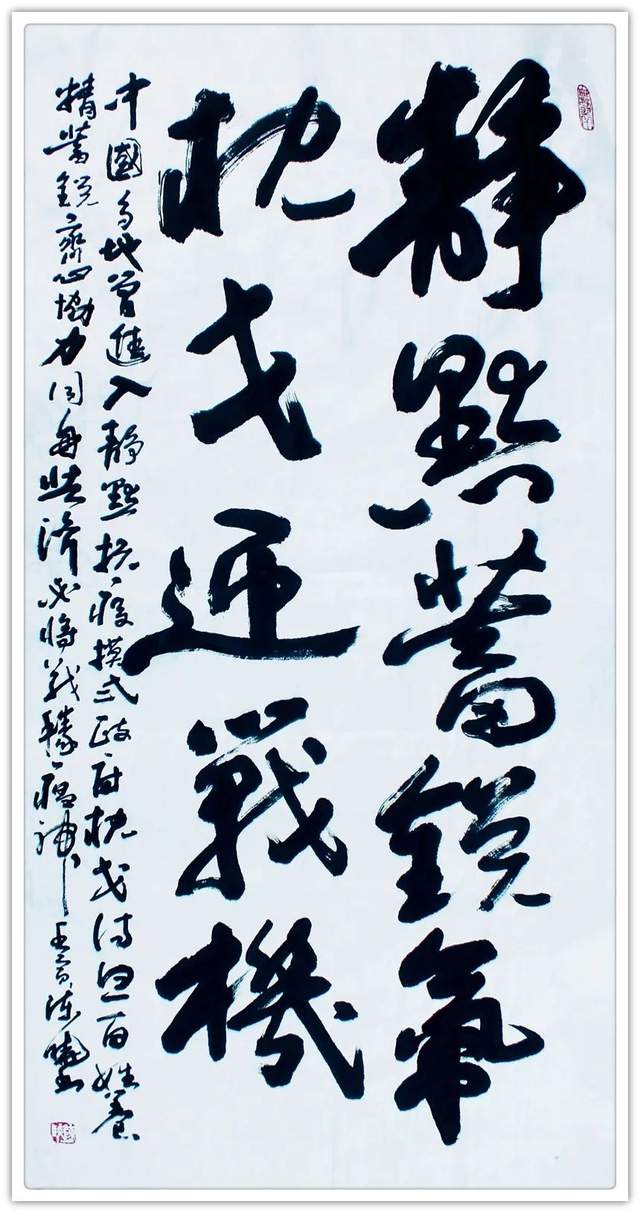 靜默蓄銳氣
枕戈迎戰機
中國多地曾進入靜默抗疫模式政府枕戈待旦百姓養
精蓄銳齊心協力同舟共濟必將戰勝瘟神壬寅陳